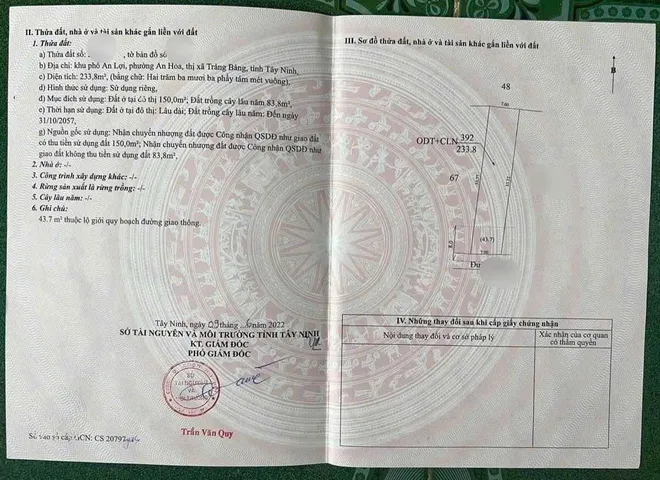 II. Thửa đất, nhà ở và tài sản khác gắn liền với đất
1. Thửa đất:
a) Thửa đất số: , tờ bản đồ số
b) Địa chỉ: khu phố An Lợi, phường An Hòa, thị xã Trảng Bàng, tỉnh Tây Ninh,
c) Diện tích: 233,8m², (bằng chữ: Hai trăm ba mươi ba phẩy tám mét vuông),
d) Hình thức sử dụng: Sử dụng riêng,
đ) Mục đích sử dụng: Đất ở tại đô thị 150,0m²; Đất trồng cây lâu năm 83,8m²,
e) Thời hạn sử dụng: Đất ở tại đô thị: Lâu dài; Đất trồng cây lâu năm: Đến ngày
31/10/2057,
g) Nguồn gốc sử dụng: Nhận chuyển nhượng đất được Công nhận QSDĐ như giao đất
có thu tiền sử dụng đất 150,0m²; Nhận chuyển nhượng đất được Công nhận QSDĐ như
giao đất không thu tiền sử dụng đất 83,8m²,
2. Nhà ở: -/-
3. Công trình xây dựng khác: -/-
4. Rừng sản xuất là rừng trồng: -/-
5. Cây lâu năm: -/-
6. Ghi chú:
43.7 m² thuộc lộ giới quy hoạch đường giao thông.
Tây Ninh, ngày 09 tháng năm 2022
SỞ TÀI NGUYÊN VÀ MÔI TRƯỜNG TỈNH TÂY NINH
KT. GIÁM ĐỐC
PHÓ GIÁM ĐỐC
SỞ
TÀI NGUYÊN
VÀ
MÔI TRƯỜNG
Trần Văn Quy
Số vào sổ cấp GCN: CS 2079
III. Sơ đồ thửa đất, nhà ở và tài sản khác gắn liền với đất
B
48
7.00
ODT+CLN 392
233.8
67
8.0
(43.7)
7.00
Đư
IV. Những thay đổi sau khi cấp giấy chứng nhận
Nội dung thay đổi và cơ sở pháp lý
Xác nhận của cơ quan
có thẩm quyền